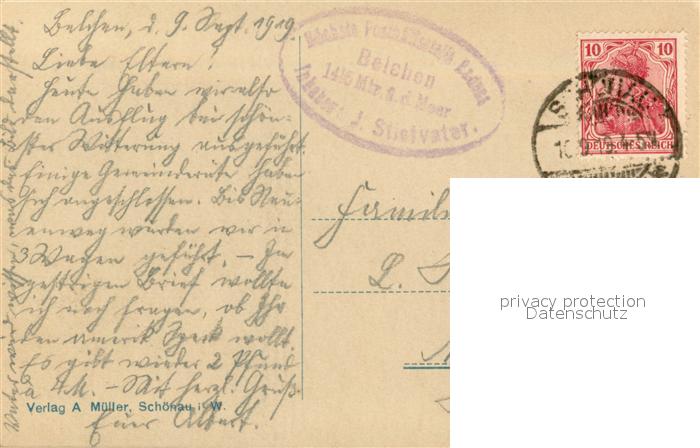 Belchen, d. 9. Sept. 1919.
Liebe Eltern!
Heute haben wir also
den Ausflug bei schön-
ster Witterung ausgeführt.
Einige Gemeinderäte haben
sich angeschlossen. Bis Neu-
enweg wurden wir in
3 Wagen geführt. – Im
gestrigen Brief wollte
ich noch fragen, ob Ihr
den amerik Speck wollt.
Es gibt wieder 2 Pfund
à 4 M. – Mit herzl. Gruß
Euer Albert.
Verlag A Müller, Schönau i. W.
Höchste Posthülfsstelle Badens
Belchen
1415 Mtr. ü. d. Meer
Inhaber: J. Stiefvater.
10 10
DEUTSCHES REICH
Familie
L.
privacy protection
Datenschutz